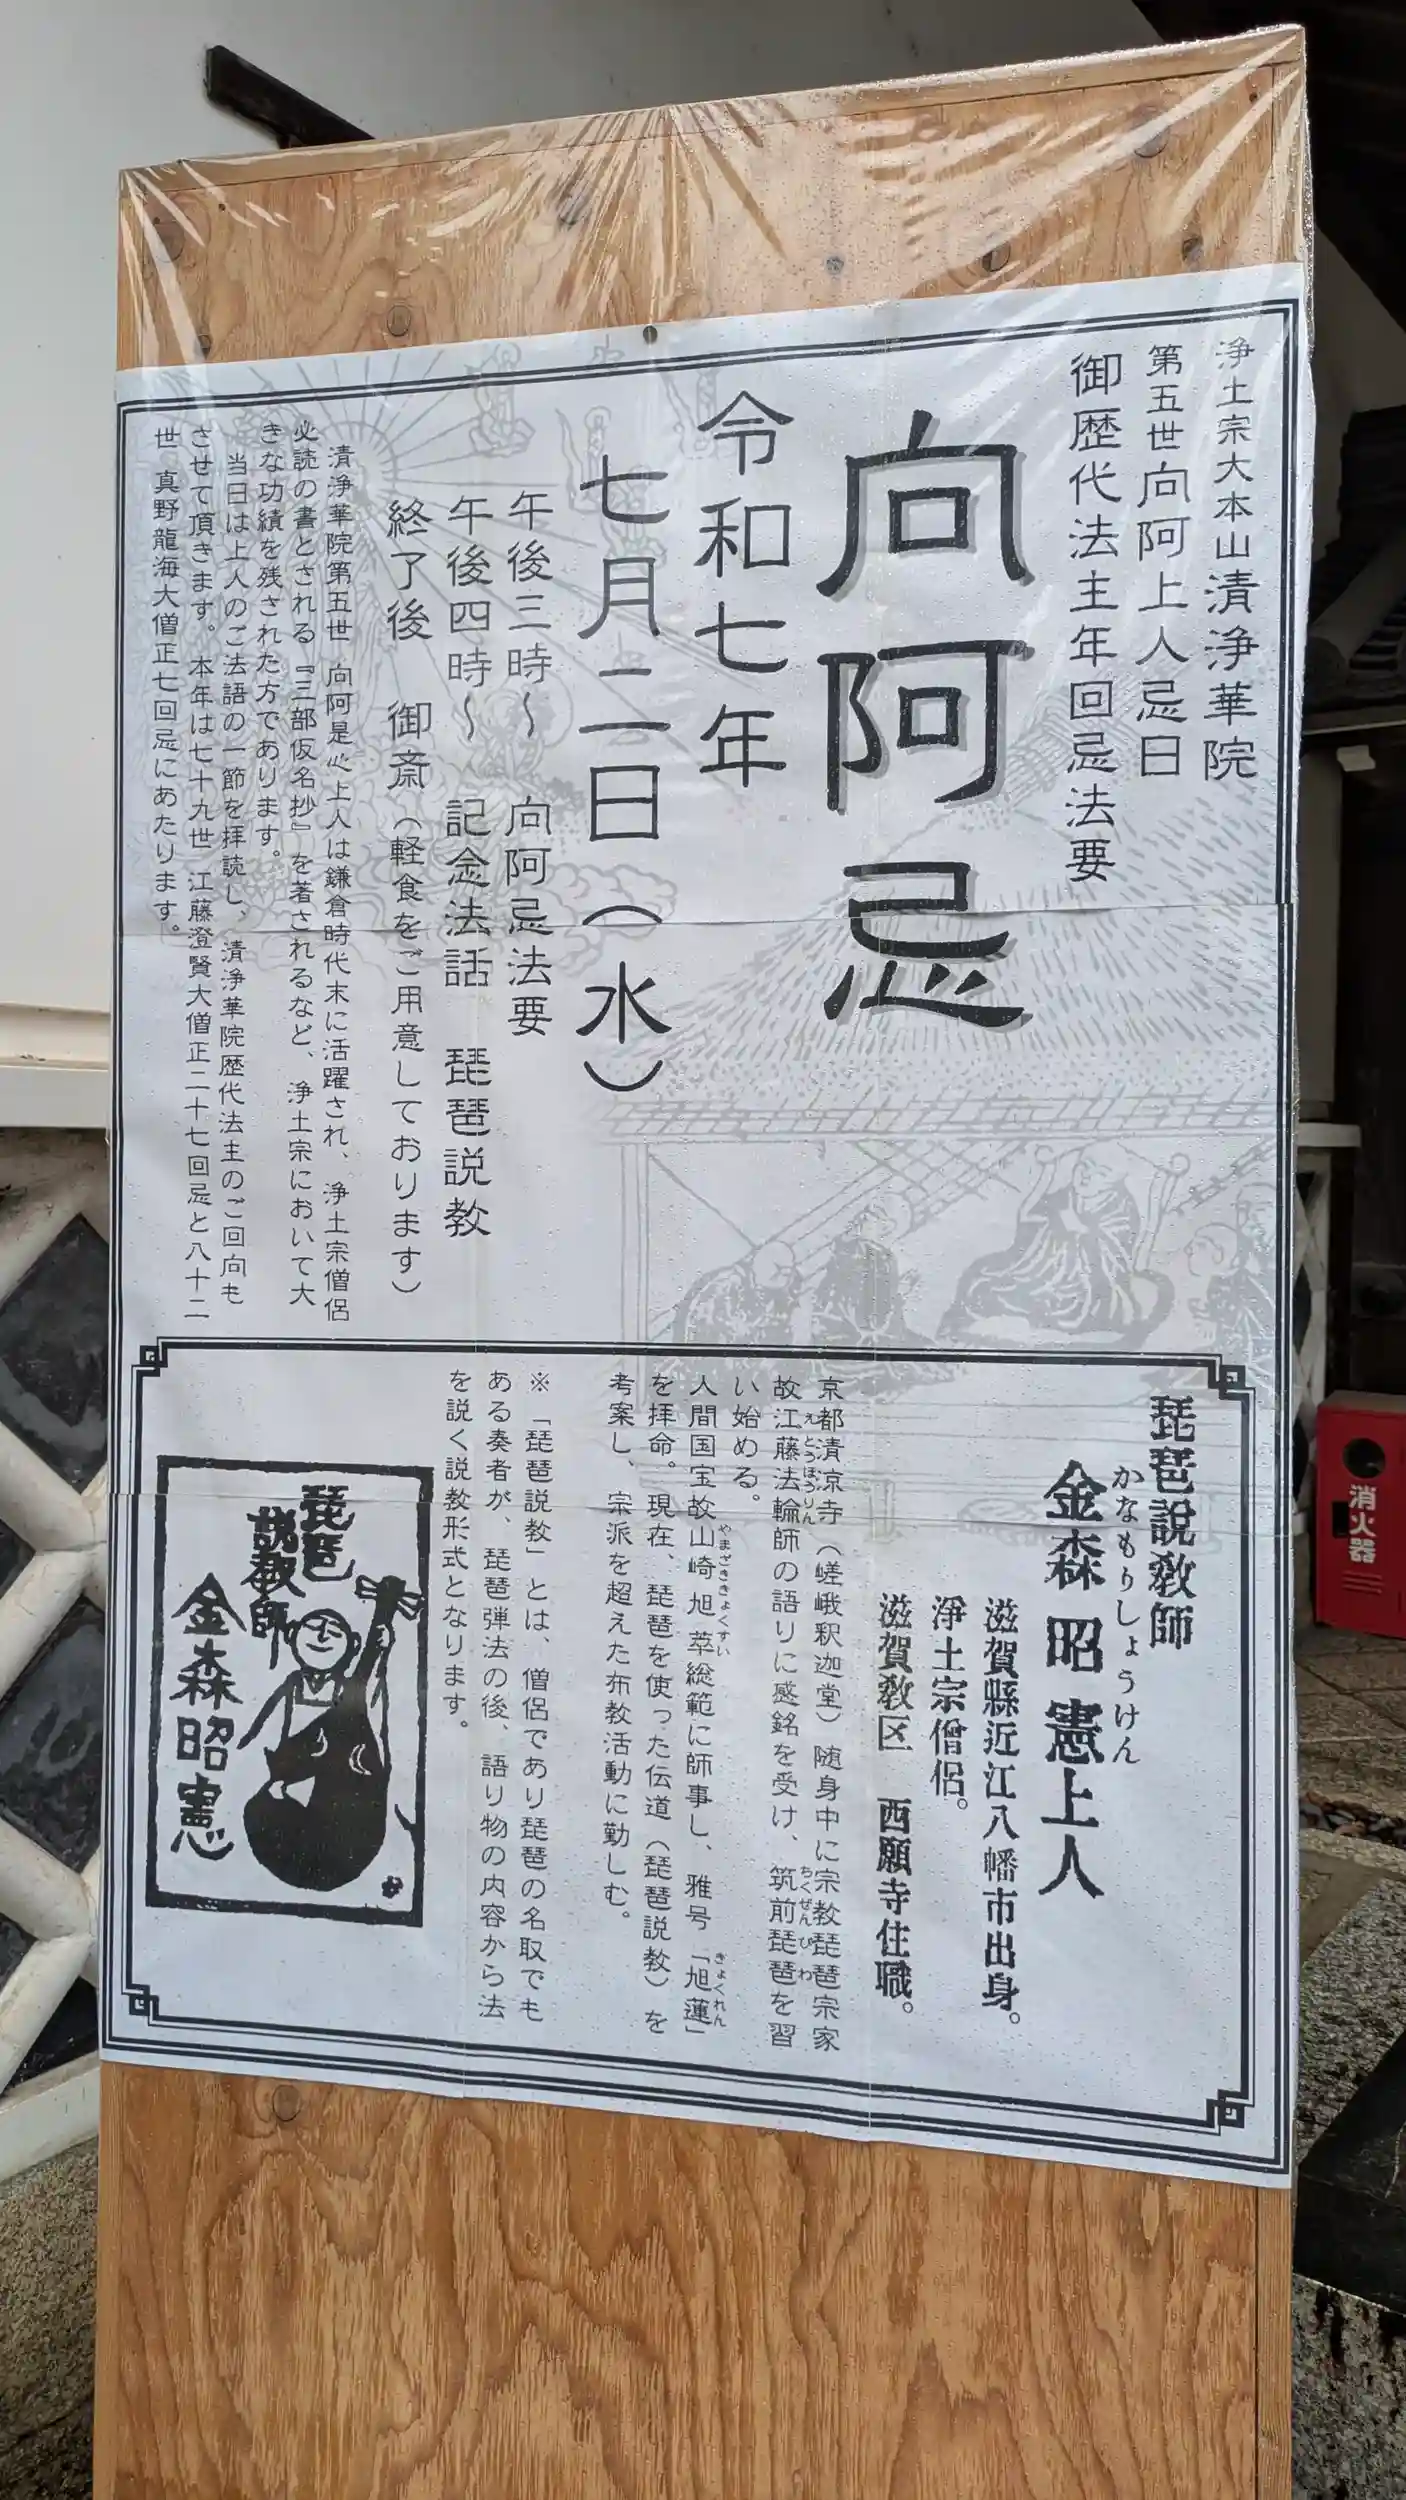 浄土宗大本山清浄華院
第五世向阿上人忌日
御歴代法主年回忌法要
向阿忌
令和七年
七月二日(水)
午後三時〜 向阿忌法要
午後四時〜 記念法話 琵琶説教
終了後 御斎(軽食をご用意しております)
清浄華院第五世 向阿是心上人は鎌倉時代末に活躍され、浄土宗僧侶
必読の書とされる『三部仮名抄』を著されるなど、浄土宗において大
きな功績を残された方であります。
当日は上人のご法語の一節を拝読し、清浄華院歴代法主のご回向も
させて頂きます。本年は七十九世 江藤澄賢大僧正二十七回忌と八十二
世 真野龍海大僧正七回忌にあたります。
琵琶說教師
かなもりしょうけん
金森 昭憲上人
滋賀縣近江八幡市出身。
淨土宗僧侶。
滋賀教区 西願寺住職。
京都清凉寺(嵯峨釈迦堂)随身中に宗教琵琶宗家
えとうほうりん
故江藤法輪師の語りに感銘を受け、筑前琵琶を習
ちくぜんびわ
い始める。
人間国宝故山崎旭萃総範に師事し、雅号「旭蓮」
やまざききょくすい
きょくれん
を拝命。現在、琵琶を使った伝道(琵琶説教)を
考案し、宗派を超えた布教活動に勤しむ。
※「琵琶説教」とは、僧侶であり琵琶の名取でも
ある奏者が、琵琶弾法の後、語り物の内容から法
を説く説教形式となります。
琵琶
説教師
金森昭憲
消火器